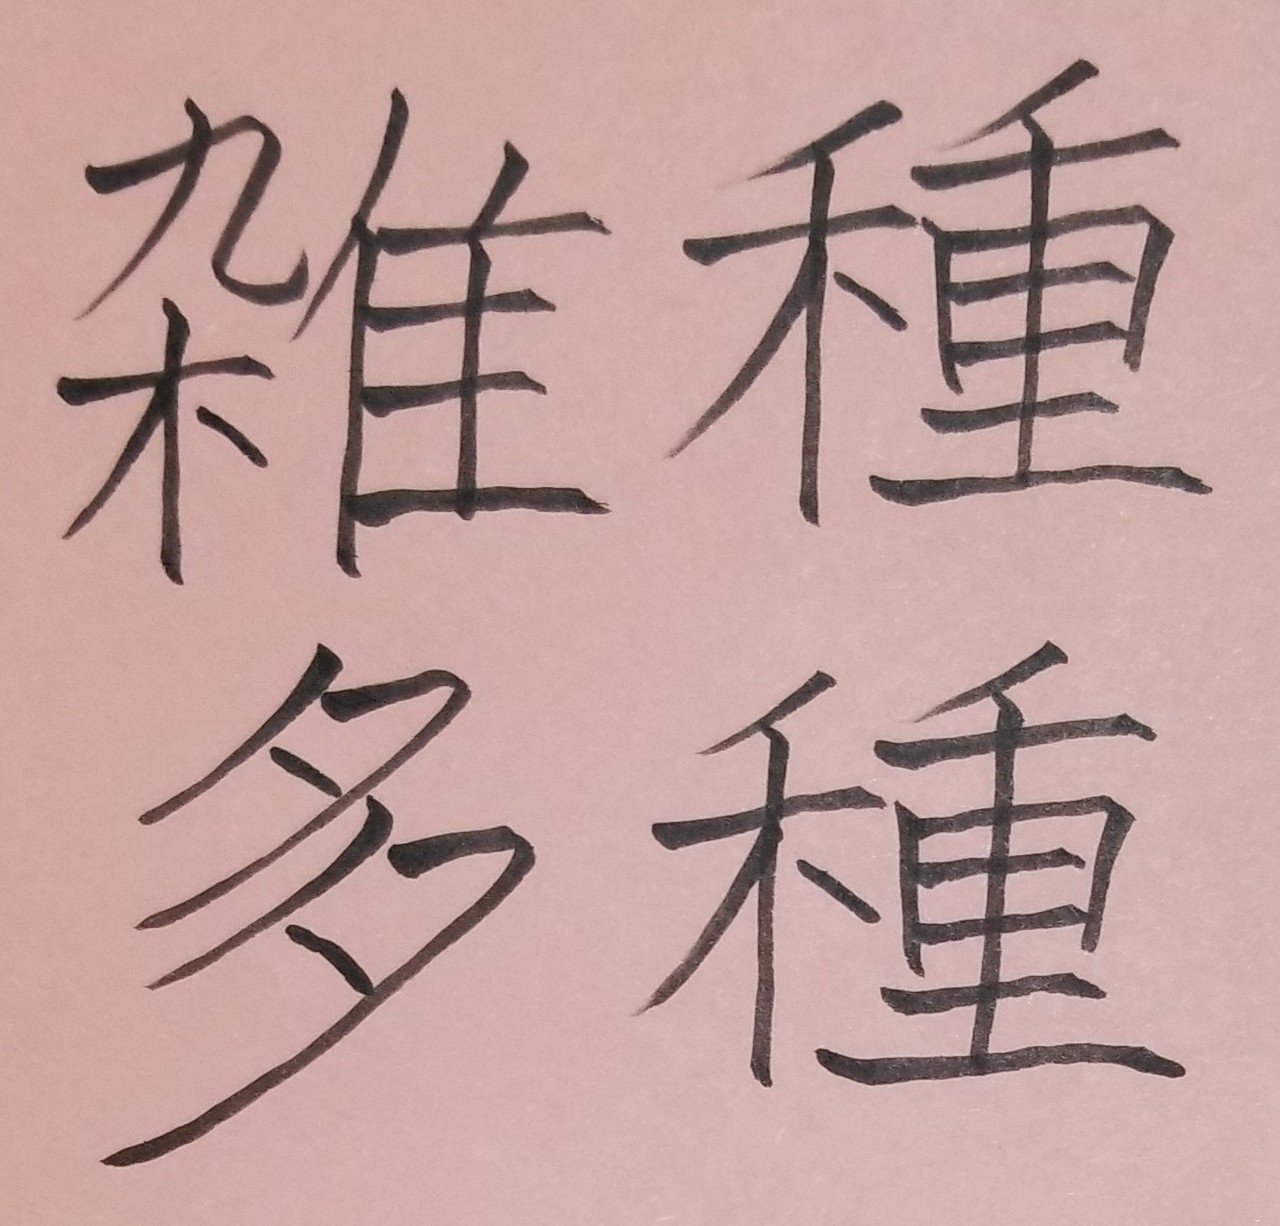 種種
雑多